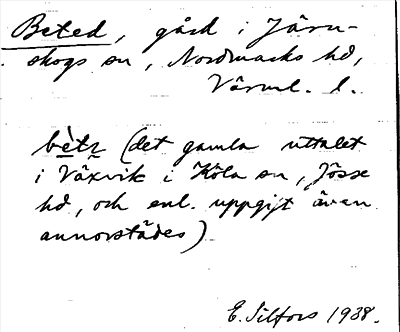 Beted, gård i Järn-
skogs sn, Nordmarks hd,
Värml. l.
bètr (det gamla uttalet
i Växvik i Köla sn, Jösse
hd, och enl. uppgift även
annorstädes)
E. Silfors 1938.